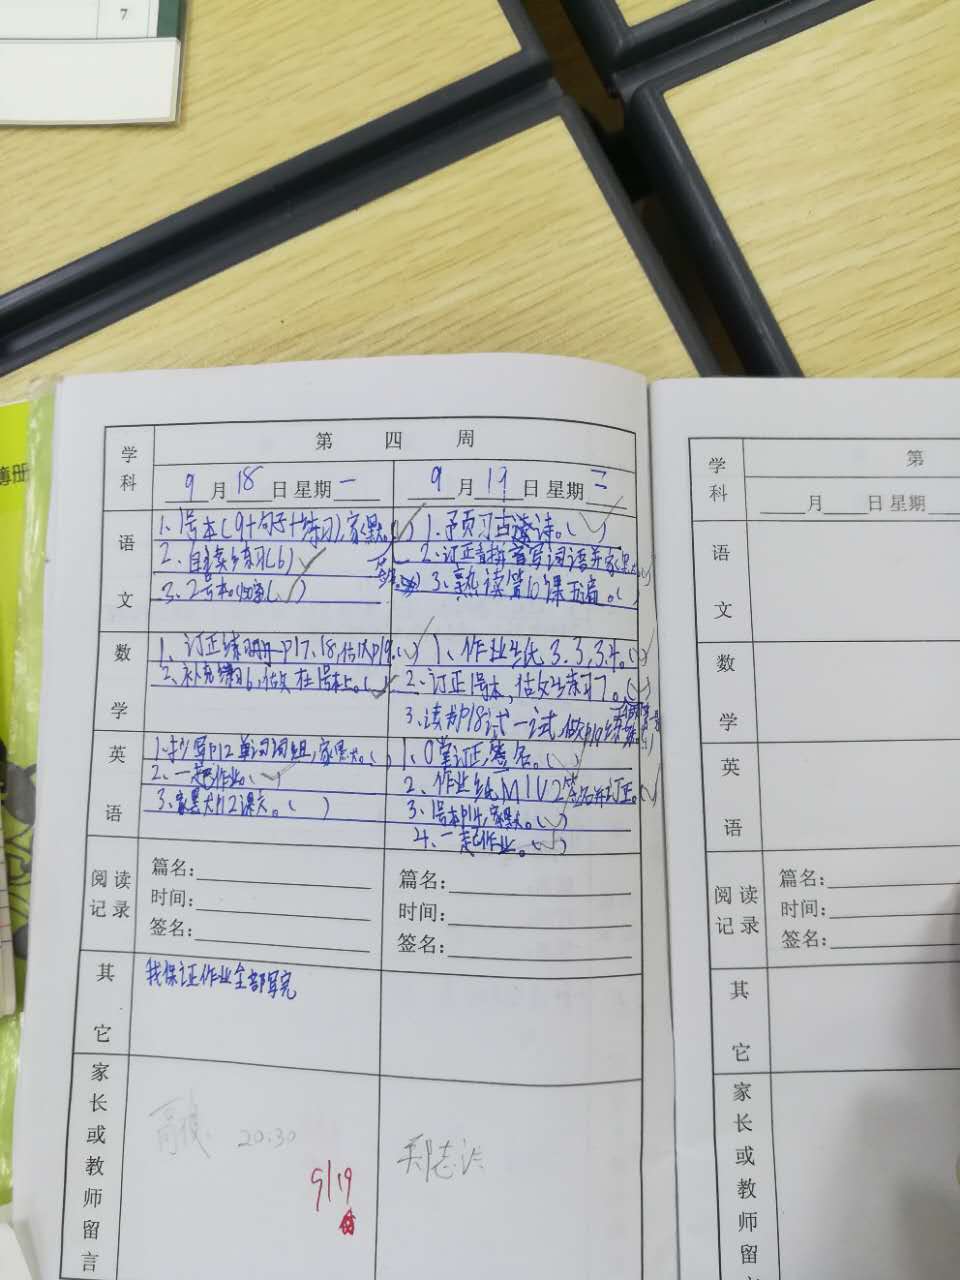 7
学科
第 四 周
9月18日星期一
9月19日星期二
语文
1、1号本(9+句子+练习),家默。( )
2、自读乡练习(6)
3、2号本。( )
1、预习古诗。( )
2、订正看拼音写词语并家默。( )
3、熟读第10课五遍。( )
数学
1、订正练习册P17、18,估以P19。( )
2、补充练习6,估以在1号本上。( )
1、作业纸3.3,3.4。( )
2、订正1号本,估以练习7。( )
3、读P18试一试,做P19
英语
1、抄写P12单词词组,家默。( )
2、一起作业。( )
3、家默P12课文。( )
1、订正,签名。( )
2、作业纸M1U2签名并订正。( )
3、1号本P14,家默。( )
4、一起作业。( )
阅读记录
篇名:
时间:
签名:
篇名:
时间:
签名:
其它
我保证作业全部写完
家长或教师留言
20:30
9/19
学科
第
月 日星期
语文
数学
英语
阅读记录
篇名:
时间:
签名:
其它
家长或教师留